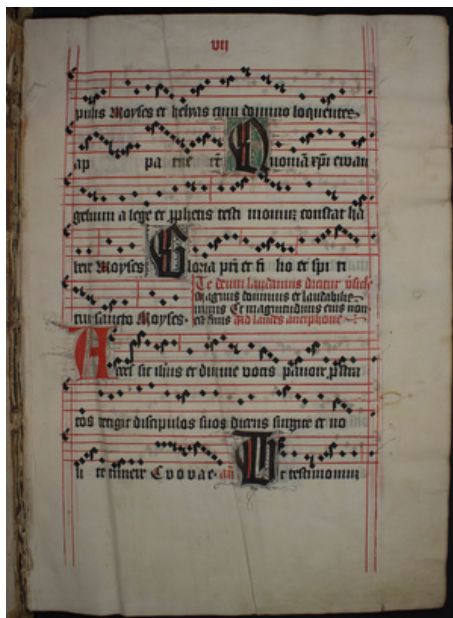 vij
pulis Moyses et helyas cum domino loquentes
ap pa rue rūt Quoniā xpi ewan
gelium a lege et prophetis testi monium constat ha
bere Moyses Gloria pri et fi lio et spi ri
Te deum laudamus dicitur
magnus dominus et laudabilis
tui sancto Moyses. nimis Et magnitudinis eius non
est finis Ad laudes antiphone
Acces sit ihus et diuine vocis
tos erigit discipulos suos dicens surgite et no
li te timere Euouae. añ Ut testimonium